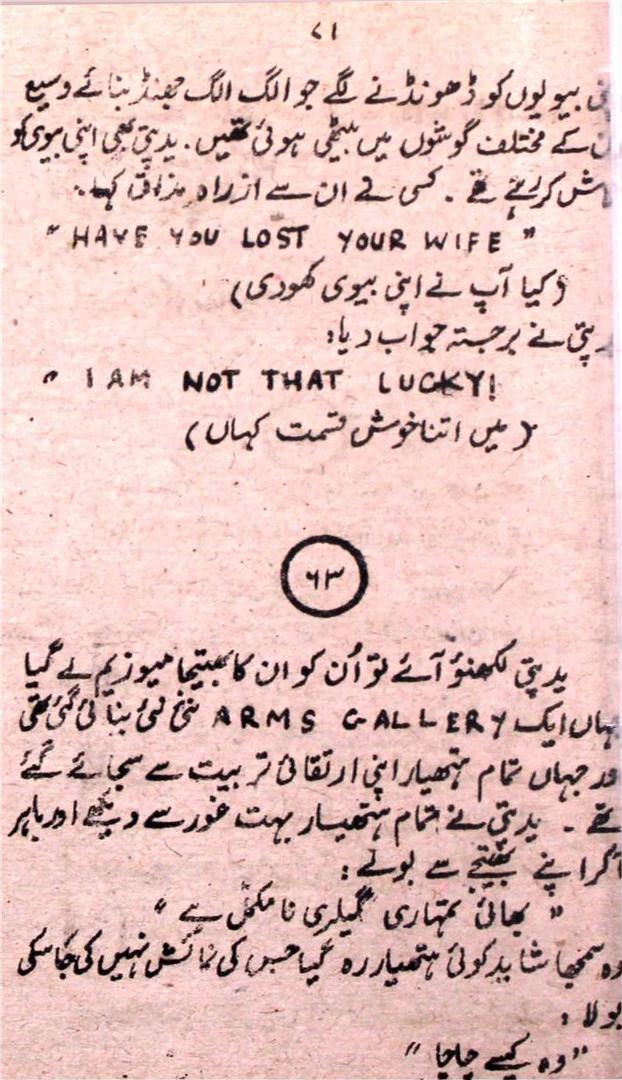 ۷۱
بیویوں کو ڈھونڈنے لگے جو الگ الگ جھنڈ بنائے وسیع
کے مختلف گوشوں میں بیٹھی ہوئی تھیں۔ یدپتی بھی اپنی بیوی کو
کر رہے تھے۔ کسی نے ان سے از راہ مذاق کہا۔
"HAVE YOU LOST YOUR WIFE"
(کیا آپ نے اپنی بیوی کھودی)
نے برجستہ جواب دیا:
"I AM NOT THAT LUCKY!
(میں اتنا خوش قسمت کہاں)
۶۳
یدپتی لکھنؤ آئے تو اُن کو ان کا بھتیجا میوزیم لے گیا
جہاں ایک ARMS GALLERY نئی نئی بنائی گئی تھی
اور جہاں تمام ہتھیار اپنی ارتقائی تربیت سے سجائے گئے
تھے۔ یدپتی نے تمام ہتھیار بہت غور سے دیکھے اور باہر
آکر اپنے بھتیجے سے بولے:
"بھائی تمہاری گیلری نا مکمل ہے"
وہ سمجھا شاید کوئی ہتھیار رہ گیا جس کی نمائش نہیں کی جاسکی
بولا:
"وہ کیسے چاچا"